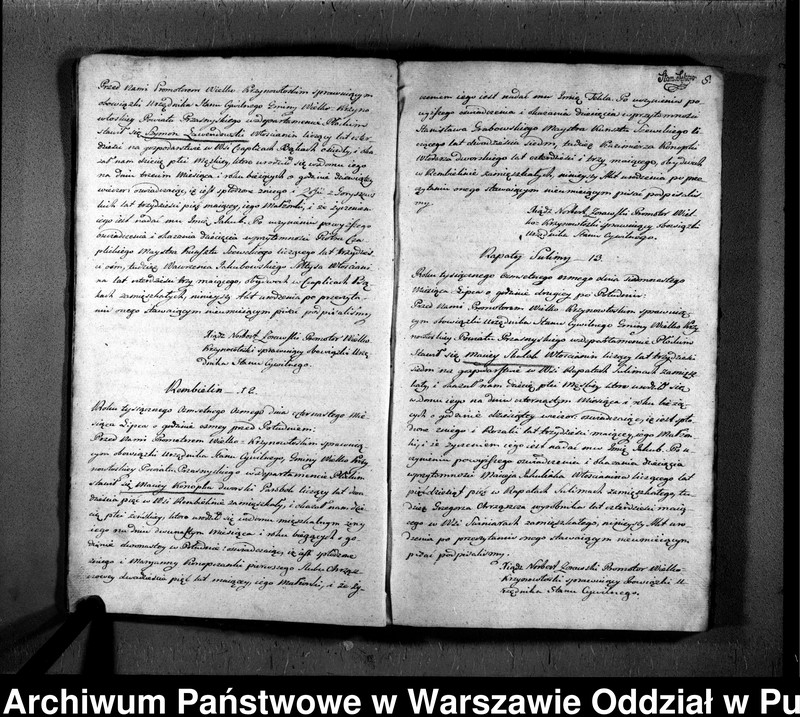 Przed Nami Promotorem Wielko Krzynowłoskim sprawuiącym
obowiązki Urzędnika Stanu Cywilnego Gminy Wielko-Krzyno
włoskiey Powiatu Przasnyskiego w Departamencie Płockim
stawił się Szymon Lewandowski Włościanin liczący lat czter
dzieści na gospodarstwie w Wsi Czaplicach Bąkach osiadły, i oka
zał nam dziecię płci Męzkiey, które urodziło się w domu iego
na dniu trzecim Miesiąca i roku bieżących o godzinie dziewiątey
wieczor, oświadczaiąc, iż iest spłodzone z niego i Zofii z
lat trzydzieści pięć maiącey, iego Małżonki, i że życzeniem
iego iest nadać mu Imię Jakub. Po uczynieniu powyższego
oświadczenia i okazania dziecięcia w przytomności Piotra Cza
plickiego Maystra Kunsztu Szewskiego liczącego lat trzydzieś
ci ośm, tudzież Wawrzenca Jakubowskiego Włościani
na lat czterdzieści trzy maiącego, obydwoch w Czaplicach Bą
kach zamieszkałych, ninieyszy Akt urodzenia po przeczyta
niu onego stawaiącym nieumieiącym pisać podpisaliśmy
Xiądz Norbert Promotor Wielko
Krzynowłoski sprawuiący obowiązki Urzę
dnika Stanu Cywilnego.
Rembielin 12.
Roku tysiącznego Osmsetnego Osmego dnia czternastego Mie
siąca Lipca o godzinie osmey przed Południem:
Przed Nami Promotorem Wielko-Krzynowłoskim sprawuią
cym obowiązki Urzędnika Stanu Cywilnego, Gminy Wielko Krzy
nowłoskiey Powiatu Przasnyskiego w Departamencie Płockim
stawił się Maciey Konopka dworski Parobek liczący lat dwa
dzieścia pięć w Wsi Rembielinie zamieszkały, i okazał nam dzie
cię płci żeńskiey, które urodziło się w domu mieszkalnym żony
iego na dniu dwunastym Miesiąca i roku bieżących o go
dzinie dwunastey w Południe oświadczaiąc, iż iest spłodzone
z niego i Maryanny Konopczanki pierwszego Ślubu
dwadzieścia pięć lat maiącey, iego Małżonki, i że ży
5.
czeniem iego iest nadać mu Imię Tekla. Po uczynieniu po
wyższego oświadczenia i okazania dziecięcia w przytomności
Stanisława Grabowskiego Maystra Kunsztu Szewskiego li
czącego lat dwadzieścia siedm, tudzież Kazimierza Konopki
Włodarza dworskiego lat czterdzieści i trzy, maiącego, obydwoch
w Rembielinie zamieszkałych, ninieyszy Akt urodzenia po prze
czytaniu onego stawaiącym nieumieiącym pisać podpisaliś
my.
Xiądz Norbert Promotor Wiel
ko-Krzynowłoski sprawuiący obowiązki
Urzędnika Stanu Cywilnego.
Rapaty Sulimy 13.
Roku tysiącznego Osmsetnego osmego dnia siedmnastego
Miesiąca Lipca o godzinie drugiey po Południu:
Przed Nami Promotorem Wielko Krzynowłoskim sprawuią
cym obowiązki Urzędnika Stanu Cywilnego Gminy Wielko Krzy
nowłoskiey Powiatu Przasnyskiego w Departamencie Płockim
Stawił się Maciey Skulak Włościanin liczący lat trzydzieści
siedm na gospodarstwie w Wsi Rapatach Sulimach zamiesz
kały, i okazał nam dziecię płci Męzkiey które urodziło się
w domu iego na dniu czternastym Miesiąca i roku bieżą
cych o godzinie dziesiątey wieczor, oświadczaiąc, iż iest spło
dzone z niego i Rozalii lat trzydzieści maiącey, iego Małżon
ki, i że życzeniem iego iest nadać mu Imię Jakub. Po u
czynieniu powyższego oświadczenia i okazania dziecięcia
w przytomności Macieia Skulaka Włościanina liczącego lat
pięćdziesiąt pięć w Rapatach Sulimach zamieszkałego, tu
dzież Grzegorza Chrząszcza wyrobnika lat czterdzieści maią
cego w Wsi zamieszkałego, ninieyszy Akt uro
dzenia po przeczytaniu onego stawaiącym nieumieiącym
pisać podpisaliśmy.
Xiądz Norbert Promotor Wielko-
Krzynowłoski sprawuiący Obowiązki U
rzędnika Stanu Cywilnego.
Archiwum Państwowe w Warszawie Oddział w Pu